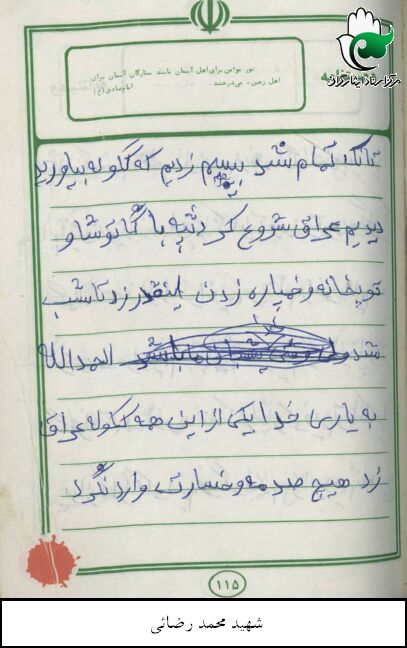 نور مؤمن برای اهل آسمان مانند ستارگان آسمان برای
اهل زمین، می‌درخشد. امام صادق (ع)
مرکز اسناد ایثارگران
تانک تمام شد بیسم زدیم که گلوله بیاورید
دیدیم عراق شروع کرد با کاتوشا و
توپخانه و خمپاره زدن اینقدر زد تا شب
شد الحمدالله
به یاری خدا یکی از این همه گلوله عراق
زد هیچ صدمه و خسارت وارد نکرد
۱۱۵
شهید محمد رضائی